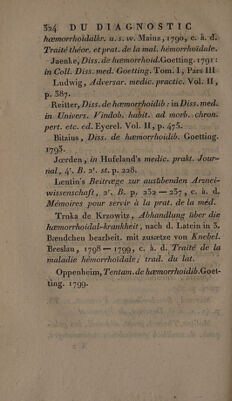 324 DU DIAGNOSTIC
hæmorrhoidalkr. u. s. w. Mainz, 1790, c. à. d.
Traité théor. et prat. de la mal. hémorrhoïdale.
Jaenke, Diss. de hæmorrhoid. Goetting. 1791:
in Coll. Diss. med. Goetting. Tom. I, Pars III
Ludwig, Adversar. medic. practic. Vol. II,
p. 387.
Reitter, Diss. de hæmorrhoidib: in Diss. med.
in Univers. Vindob. habit. ad morb. chron.
pert. etc. ed. Eyerel. Vol. II, p. 475.
Bitzius, Diss. de hæmorrhoidib. Goetting.
1795.
Jœrden, in Hufeland's medic. prakt. Jour-
nal, 4e. B. 2e. st. p. 228.
Lentin's Beitræge zur ausübenden Arznei-
wissenschaft, 2e. B. p. 232 — 237, c. à. d.
Mémoires pour servir à la prat. de la méd.
Trnka de Krzowitz, Abhandlung über die
hæmorrhoidal-krankheit, nach d. Latein in 3.
Bændchen bearbeit. mit zusætze von Knebel.
Breslau, 1798 — 1799, c. à. d. Traité de la
maladie hémorrhoïdale; trad. du lat.
Oppenheim, Tentam. de hæmorrhoidib. Goet-
ting. 1799.